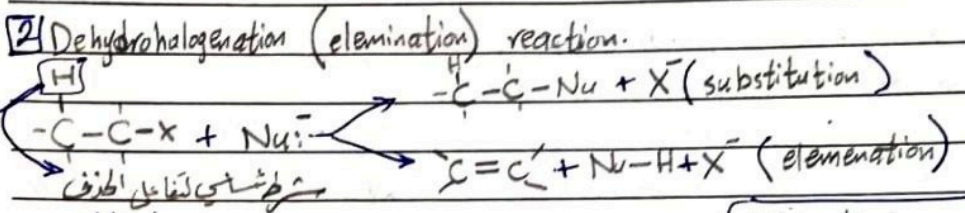 2 Dehydrohalogenation (elemination) reaction.
H
-C-C-X + Nu:⁻
H
-C-C-Nu + X⁻ (substitution)
C=C + Nu-H + X⁻ (elemenation)
شرط أساسي لتفاعل الحذف